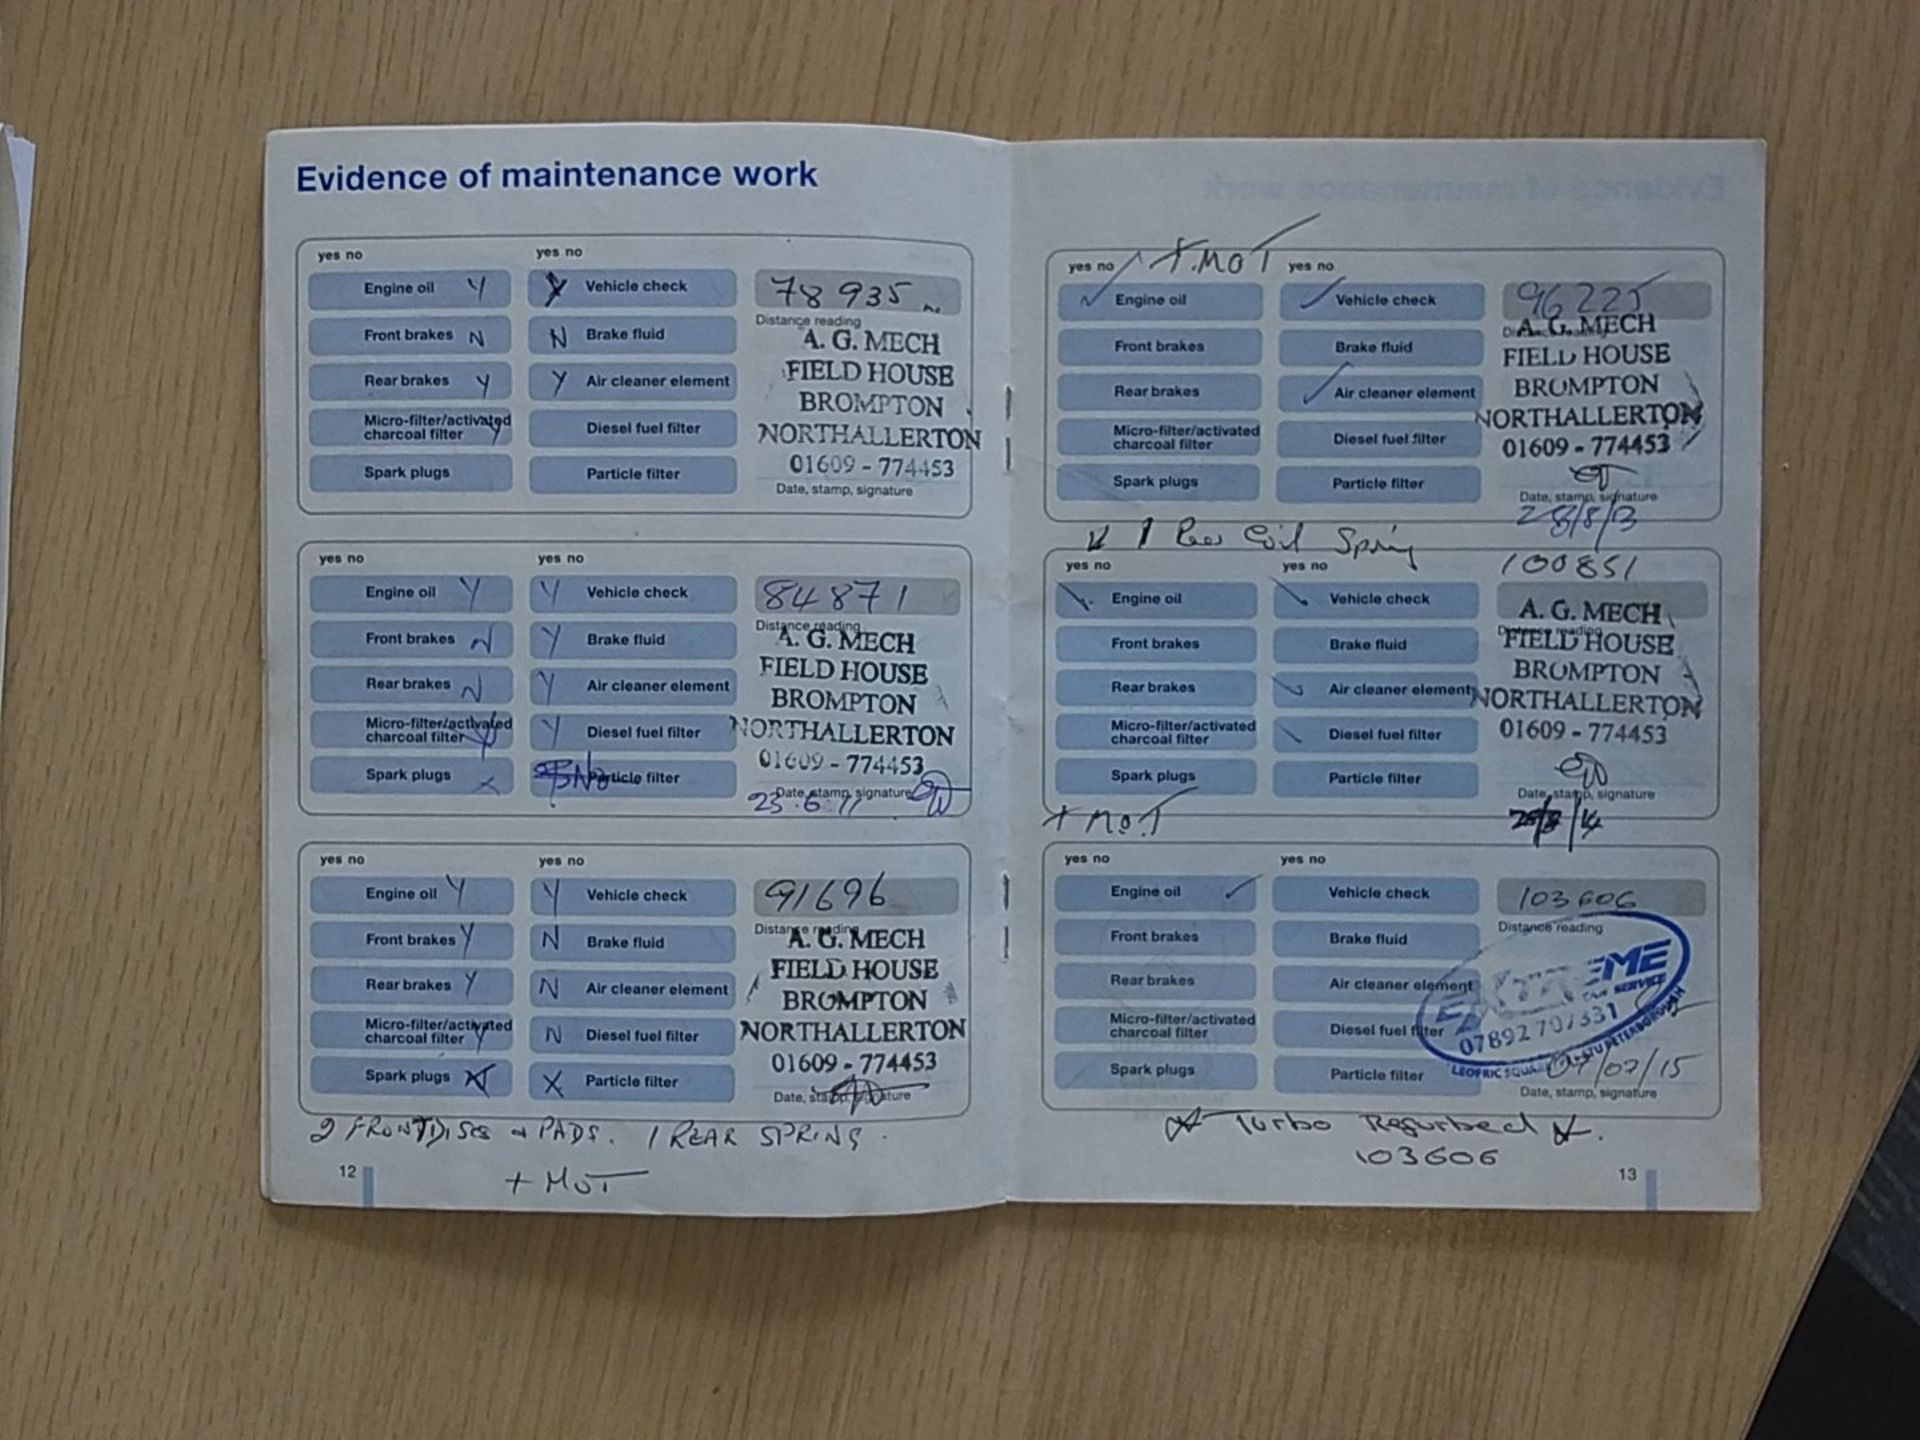 Evidence of maintenance work
yes no
yes no
Engine oil Y
Y Vehicle check
78 935
Front brakes N
N Brake fluid
Distance reading
Rear brakes Y
Y Air cleaner element
Micro-filter/activated
charcoal filter Y
Diesel fuel filter
Spark plugs
Particle filter
A. G. MECH
FIELD HOUSE
BROMPTON
NORTHALLERTON
01609 - 774453
Date, stamp, signature
yes no
yes no
Engine oil Y
Y Vehicle check
84871
Front brakes N
Y Brake fluid
Distance reading
Rear brakes N
Y Air cleaner element
Micro-filter/activated
charcoal filter Y
Y Diesel fuel filter
Spark plugs
No Particle filter
A. G. MECH
FIELD HOUSE
BROMPTON
NORTHALLERTON
01609 - 774453
Date, stamp, signature
23.6.11
yes no
yes no
Engine oil Y
Y Vehicle check
91696
Front brakes Y
N Brake fluid
Distance reading
Rear brakes Y
N Air cleaner element
Micro-filter/activated
charcoal filter Y
N Diesel fuel filter
Spark plugs
X Particle filter
A. G. MECH
FIELD HOUSE
BROMPTON
NORTHALLERTON
01609 - 774453
Date, stamp, signature
2 FRONT DISCS + PADS. 1 REAR SPRING.
+ MOT
12
+ MOT
yes no
yes no
Engine oil
Vehicle check
96225
Front brakes
Brake fluid
Rear brakes
Air cleaner element
Micro-filter/activated
charcoal filter
Diesel fuel filter
Spark plugs
Particle filter
A. G. MECH
FIELD HOUSE
BROMPTON
NORTHALLERTON
01609 - 774453
Date, stamp, signature
28/8/13
1 Rear Coil Spring
yes no
yes no
100851
Engine oil
Vehicle check
Front brakes
Brake fluid
Rear brakes
Air cleaner element
Micro-filter/activated
charcoal filter
Diesel fuel filter
Spark plugs
Particle filter
A. G. MECH
FIELD HOUSE
BROMPTON
NORTHALLERTON
01609 - 774453
Date, stamp, signature
+ MOT
yes no
yes no
Engine oil
Vehicle check
103606
Front brakes
Brake fluid
Distance reading
Rear brakes
Air cleaner element
Micro-filter/activated
charcoal filter
Diesel fuel filter
Spark plugs
Particle filter
EXTREME
SERVICE
07892 707331
PETERBOROUGH
07/07/15
Date, stamp, signature
Turbo Refurbed
103606
13